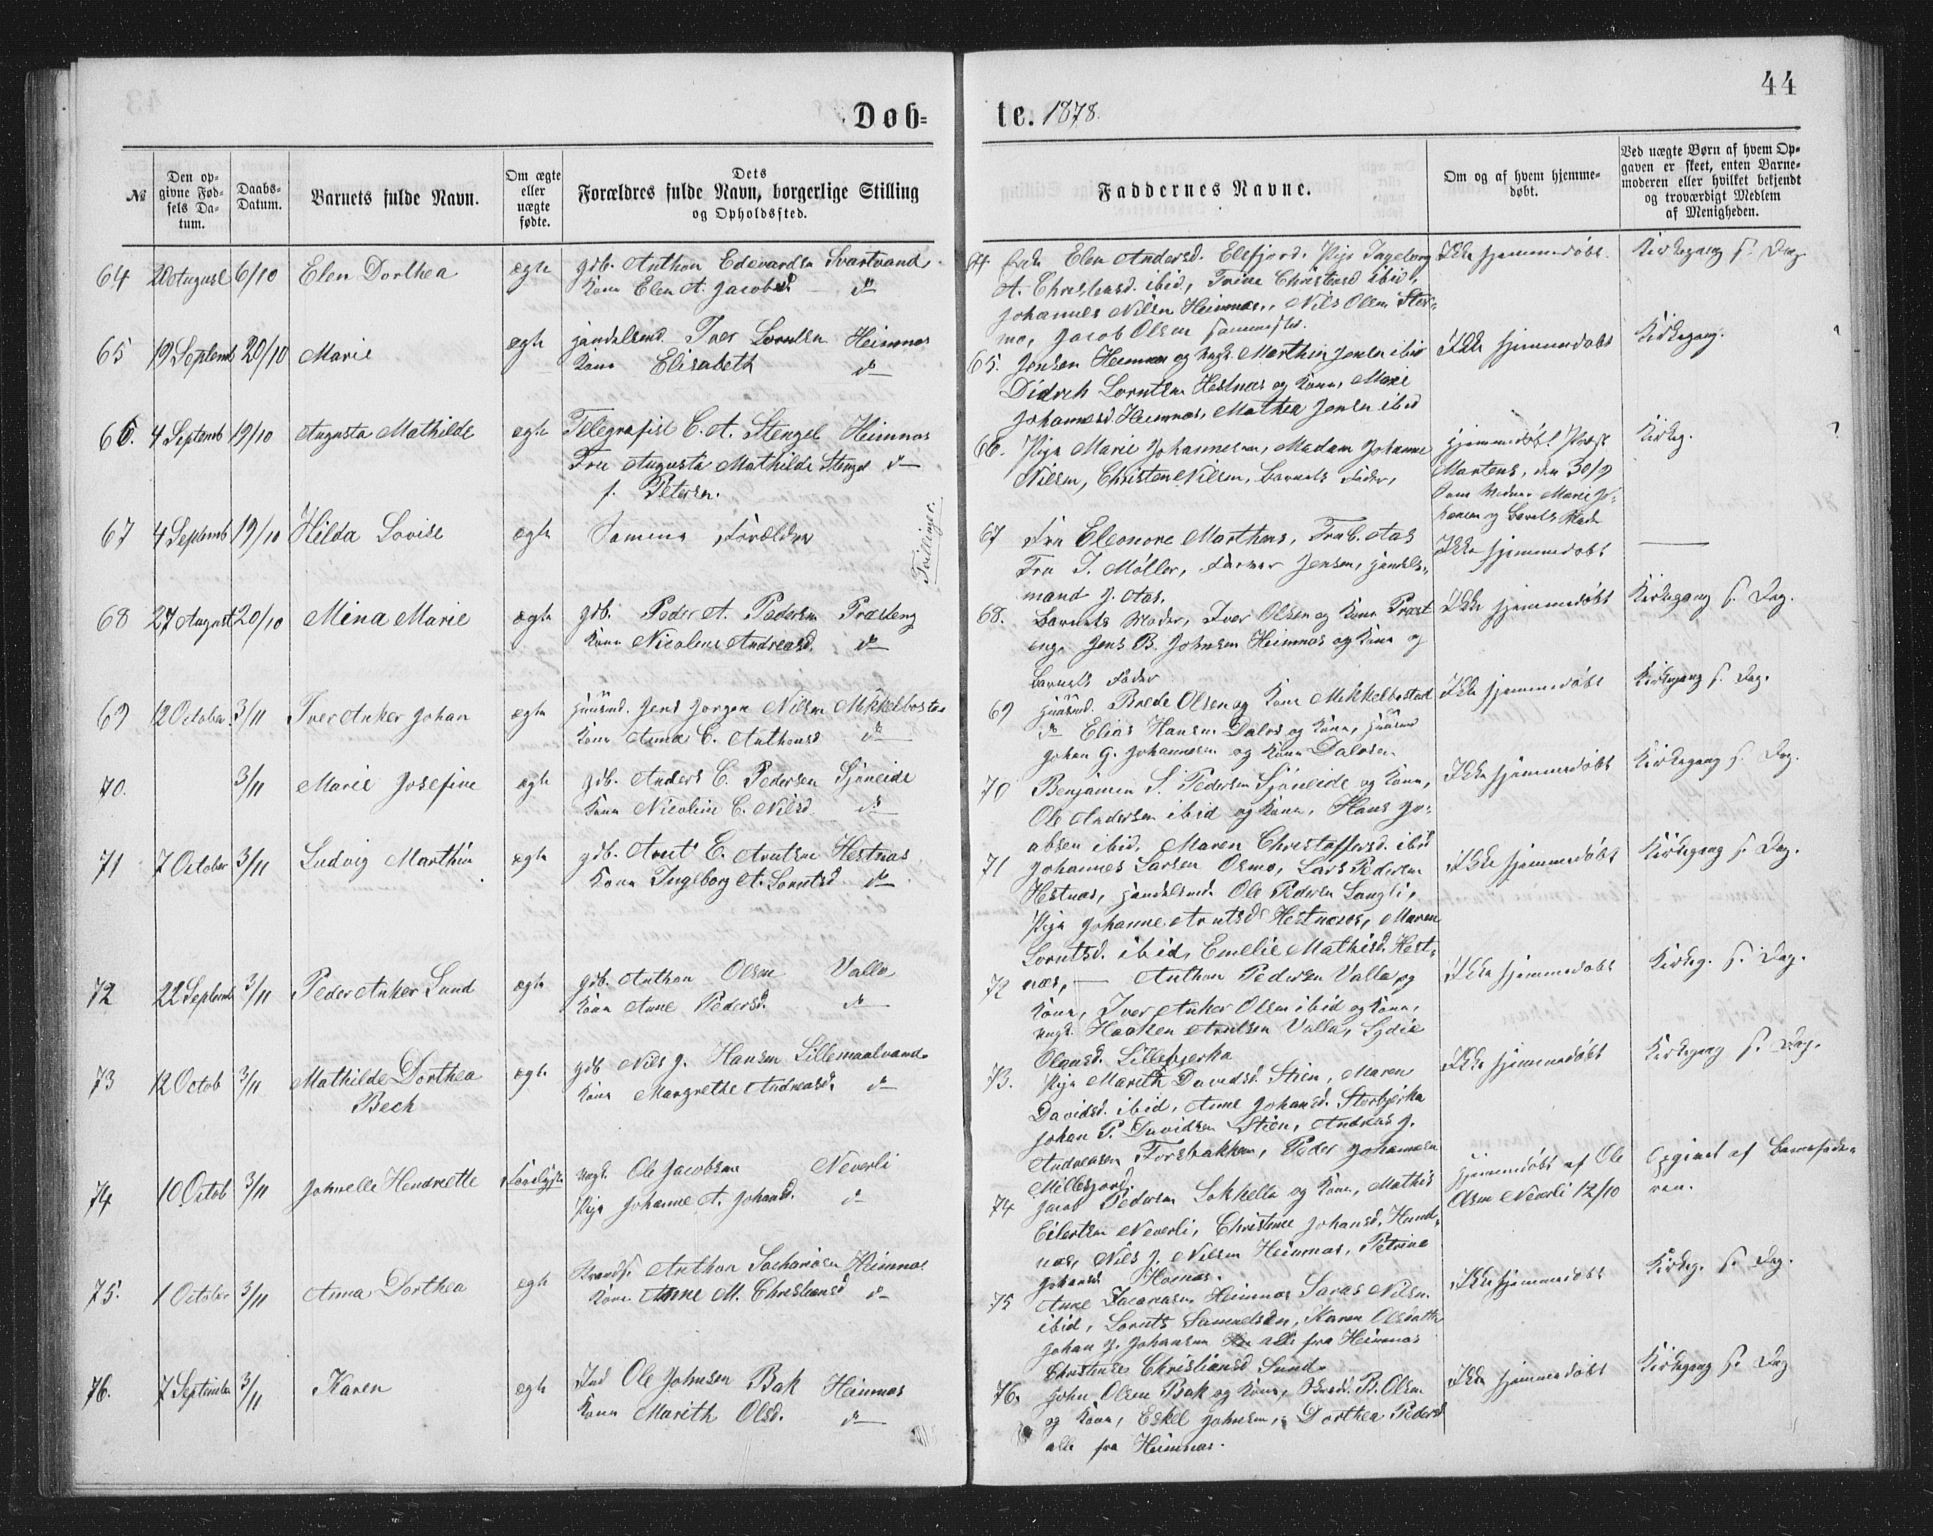 44
Døb=
te. 1878.
№
Den op-
givne Fød-
sels Da-
tum.
Daabs-
Datum.
Barnets fulde Navn.
Om ægte
eller
uægte
fødte.
Dets
Forældres fulde Navn, borgerlige Stilling
og Opholdssted.
Faddernes Navne.
Om og af hvem hjemme-
døbt.
Ved uægte Børn af hvem Op-
gaven er skeet, enten Barne-
moderen eller hvilket bekjendt
og troværdigt Medlem
af Menigheden.
64 20 August 6/10 Elen Dorthea ægte gdb. Anthon Edevardsen Svartvand
Kone Elen A. Jacobsd. do
Elen Andersd. Elsfjord, Pige Ingeborg
A. Christiansd. ibid, Trine Christensd ibid,
Johannes Nilsen Heimnæs, Nils Olsen Stor-
mo, Jacob Olsen sammesteds.
Ikke hjemmedøbt. Kirkegang s. Dag.
65 19 Septemb 20/10 Marie ægte Handelsmd. Iver Lorntsen Heimnæs
Kone Elisabeth do
65. Jensen Heimnæs og Ungk. Marthin Jensen ibid
Didrich Lorntsen Hestnæs og Kone, Marie
Johannesd Heimnæs, Mathea Jensen ibid
Ikke hjemmedøbt Kirkegang.
66. 4 Septemb 19/10 Augusta Mathilde ægte Telegrafist C. A. Stengel Heimnæs
Fru Augusta Mathilde Stengel do
f. Petersen.
66. Pige Marie Johannesen, Madam Johanne
Nilsen, Christen Nilsen, Barnets Fader,
Hjemmedøbt Præst
Martens, den 30/9
Kirkeg.
67 4 Septemb 19/10 Hilda Lovise ægte Samme Forældre
Tvillinger.
67 Fru Eleonore Marthens, Fru C. Aas
Fru I. Møller, Farver Jensen, Handels-
mand J. Aas.
Ikke hjemmedøbt
68 27 August 20/10 Mina Marie ægte gdb. Peder A. Pedersen Præsteng
Kone Nicoline Andreasd. do
68. Barnets Moder, Iver Olsen og Kone Præst
enge Jens B. Johnsen Heimnæs og Kone og
Barnets Fader
Ikke hjemmedøbt Kirkegang s. Dag.
69 12 October 3/11 Iver Anker Johan ægte Huusmd. Jens Jørgen Nilsen Mikkelbostad
Kone Anna C. Anthonsd do
69 Huusmd. Brede Olsen og Kone Mikkelbostad
do Elias Hansen Dalos og Kone, Huusm
Johan G. Johannesen og Kone Dalosen
Ikke hjemmedøbt Kirkegang s. Dag.
70. 3/11 Marie Josefine ægte gdb. Anders C. Pedersen Sjøneide
Kone Nicoline C. Nilsd. do
70 Benjamin S. Pedersen Sjøneide og Kone,
Ole Andersen ibid og Kone, Hans Ja-
cobsen ibid, Maren Christoffersd. ibid
Ikke hjemmedøbt Kirkegang s. Dag.
71 7 October 3/11 Ludvig Marthin ægte gdb. Arnt E. Arntsen Hestnæs
Kone Ingeborg A. Lorntsd do
71 Johannes Larsen Osmo, Lars Pedersen
Hestnæs, Handelsmd. Ole Pedersen Langli,
Pige Johanne Arntsd Hestnæs, Maren
Lorntsd. ibid, Emelie Mathisd. Hest-
næs,
Ikke hjemmedøbt Kirkegang s. Dag.
72 22 Septemb 3/11 Peder Anker Lund ægte gdb. Anthon Olsen Valla
Kone Anne Pedersd. do
72 Anthon Pedersen Valla og
Kone, Iver Anker Olsen ibid og Kone,
Ungk. Haaken Arntsen Valla, Lydie
Olausd. Lillebjerka
Ikke hjemmedøbt Kirkeg. s. Dag.
73 12 Octob 3/11 Mathilde Dorthea
Bech
ægte gdb Nils J. Hansen Lillemaalvand
Kone Margrethe Andreasd. do
73. Pige Marith Davidsd. Stien, Maren
Davidsd. ibid, Anne Johansd. Storbjerka
Johan P. Davidsen Stien, Andreas J.
Andreasen Forsbakken, Peder Johannesen
Millesjord.
Ikke hjemmedøbt Kirkegang s. Dag.
74 10 Octob 3/11 Johnelle Hendriette uægte Ungk. Ole Jacobsen Neverli
Pige Johanne A. Johansd. do
74 Jacob Pedersen Lokkella og Kone, Mathis
Eilertsen Neverli, Christense Johansd. Hund-
næs, Nils J. Nilsen Heimnæs, Petrine
Johansd.
Hjemmedøbt af Ole
Olsen Neverli 12/10
Opgivet af Barnefade-
ren.
75. 1 October 3/11 Anna Dorthea ægte Strands. Anthon Sachariasen Heimnæs
Kone Anne M. Christiansd do
75 Anne Heimnæs Saras Nilsen
ibid, Lornts Samuelsen, Karen Olsdatter
Johan J. Johansen alle fra Heimnæs
Christense Christiansd Sund
Ikke hjemmedøbt Kirkeg. s. Dag.
76. 7 September 3/11 Karen ægte Ind Ole Johnsen Bak Heimnæs
Kone Marith Olsd. do
76. John Olsen Bak og Kone, P. Olsen
og Kone, Eskel Johnsen, Dorthea Pedersd
alle fra Heimnæs.
Ikke hjemmedøbt Kirkegang s. Dag